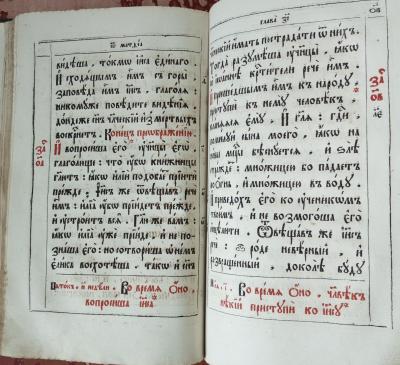 Ѿ МАТѲЕА
видѣша, токмѡ іиса единаго.
И сходящымъ имъ съ горы
заповѣда имъ іисъ, глаголя
никомуже повѣдите видѣнія
дондеже сн҃ъ чл҃вѣческій из мертвыхъ
воскрⷭ҇нетъ. Конецъ преѡбраженію.
И вопросиша его ᲂу҆ченицы его
глаголюще: что ᲂу҆бо книжницы
гл҃ютъ, ꙗкѡ иліи подобаетъ прїити
прежде; іисъ же ѿвѣщавъ рече
имъ: иліа ᲂу҆бѡ прїидетъ прежде,
и ᲂу҆строитъ вся. Гл҃ю же вамъ:
ꙗкѡ иліа ᲂу҆же прїиде, и не по-
знаша его: но сотвориша ѡ немъ
елика восхотѣша. такѡ и
Во время Ѻно,
вопросиша іиса
ГЛАВА ЗІ
имать пострадати ѿ нихъ.
Тогда разумѣша ᲂу҆ченицы, ꙗкѡ
ѡ іѡаннѣ крⷭ҇тители рече имъ.
И пришедшымъ имъ къ народу,
приступи къ нему человѣкъ,
кланяяся ему: И гл҃я: гдⷭ҇и
помилуй сына моего, ꙗкѡ на
новы мцⷭ҇ы бѣснуется, и ѕлѣ
страждетъ: множицею бо падаетъ
во ѻгнь, и множицею въ воду.
И приведохъ его ко ᲂу҆ченикомъ
твоимъ, и не возмогоша его
исцѣлити. Ѿвѣщавъ же іисъ
рече: Ѽ роде невѣрный и
развращенный, доколѣ буду
Во время Ѻно, человѣкъ
нѣкій приступи ко іису